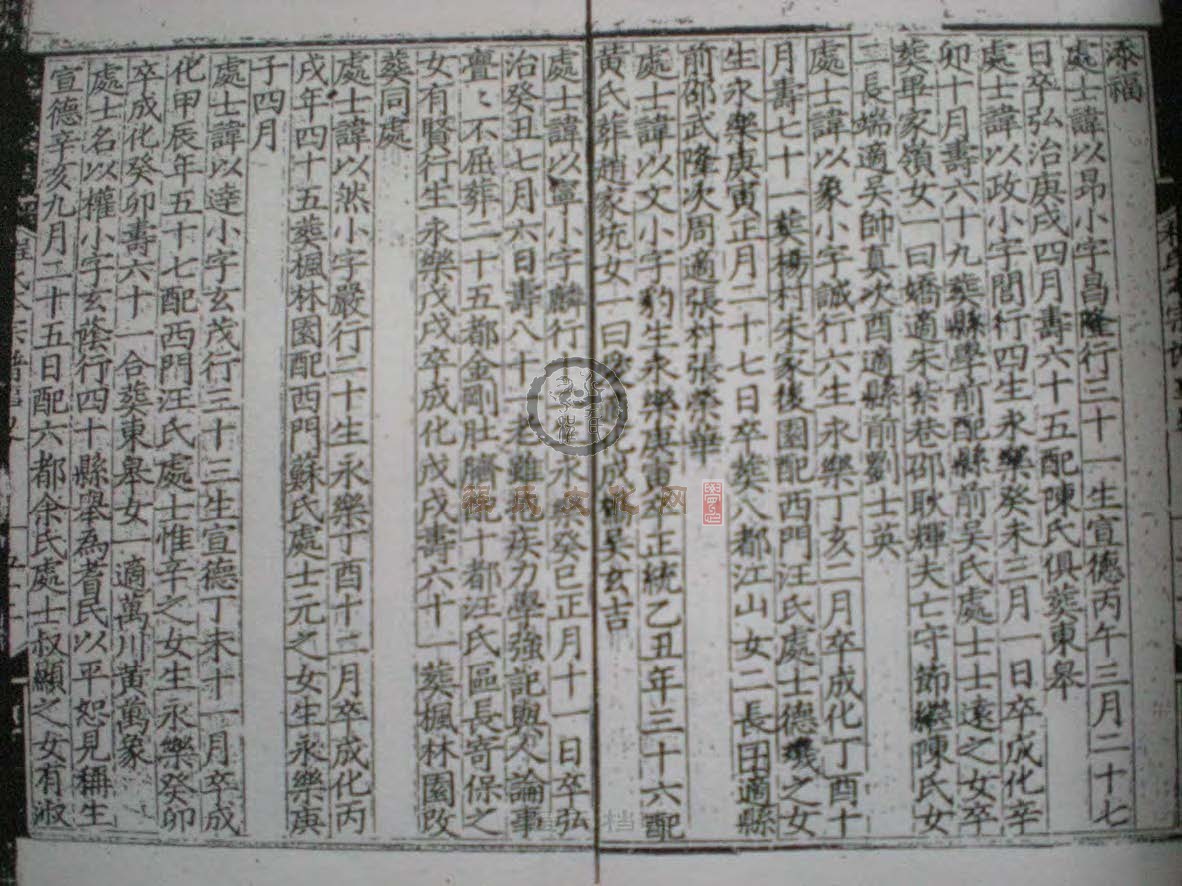 添福
處士諱以昂小字昌隆行三十一生宣德丙午三月二十七
日卒弘治庚戌四月壽六十五配陳氏俱葬東臯
處士諱以政小字閏行四生永樂癸未三月一日卒成化辛
卯十月壽六十九葬縣學前配縣前吴氏處士士遠之女卒
葬畢家嶺女一曰嬌適朱紫巷邵耿輝夫亡守節繼陳氏女
二長端適吴帥真次酉適縣前劉士英
處士諱以象小字誠行六生永樂丁亥二月卒成化丁酉十
月壽七十一葬楊村朱家後園配西門汪氏處士德之女
生永樂庚寅正月二十七日卒葬八都江山女二長田適縣
前邵武隆次周適張村張榮華
處士諱以文小字豹生永樂庚寅卒正統乙丑年三十六配
黄氏葬趙家坑女一曰愛吴玄吉
處士諱以寧小字麟行二生永樂癸巳正月十一日卒弘
治癸丑七月六日壽八十一老雖危疾力學強記與人論事
亹〻不屈葬二十五都金剛肚臍配十都汪氏區長寄保之
女有賢行生永樂戊戌卒成化戊戌壽六十一葬楓林園改
葬同處
處士諱以然小字嚴行二十生永樂丁酉十二月卒成化丙
戌年四十五葬楓林園配西門蘇氏處士元之女生永樂庚
子四月
處士諱以達小字玄茂行三十三生宣德丁未十一月卒成
化甲辰年五十七配西門汪氏處士惟辛之女生永樂癸卯
卒成化癸卯壽六十一合葬東臯女一適萬川黄萬象
處士名以權小字玄陰行四十縣舉為耆民以平恕見稱生
宣德辛亥九月二十五日配六都余氏處士叔顯之女有淑
程氏文化网
档